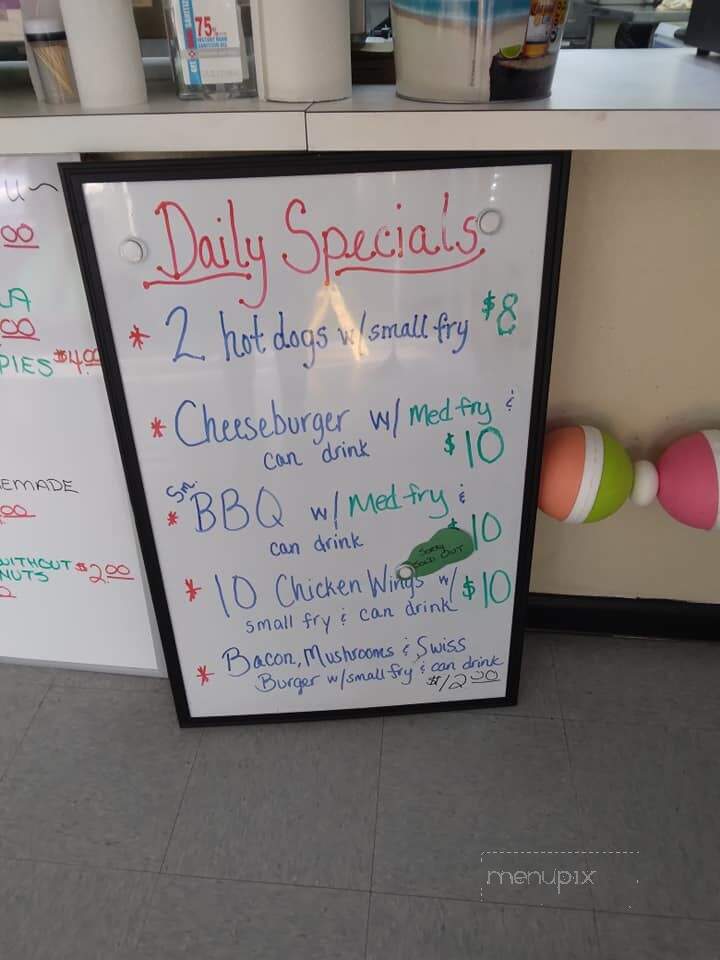 75%
INSTANT HAND
SANITIZER
u~
00
LA
00
PIES $4.00
EMADE
.00
WITHOUT
NUTS $2.00
Daily Specials
* 2 hot dogs w/small fry $8
* Cheeseburger w/ Med fry &
can drink $10
Sm.
* BBQ w/ Med fry &
can drink $10
Sorry
Sold OUT
* 10 Chicken Wings w/ $10
small fry & can drink
* Bacon, Mushrooms & Swiss
Burger w/small fry & can drink
$12.00
menupix